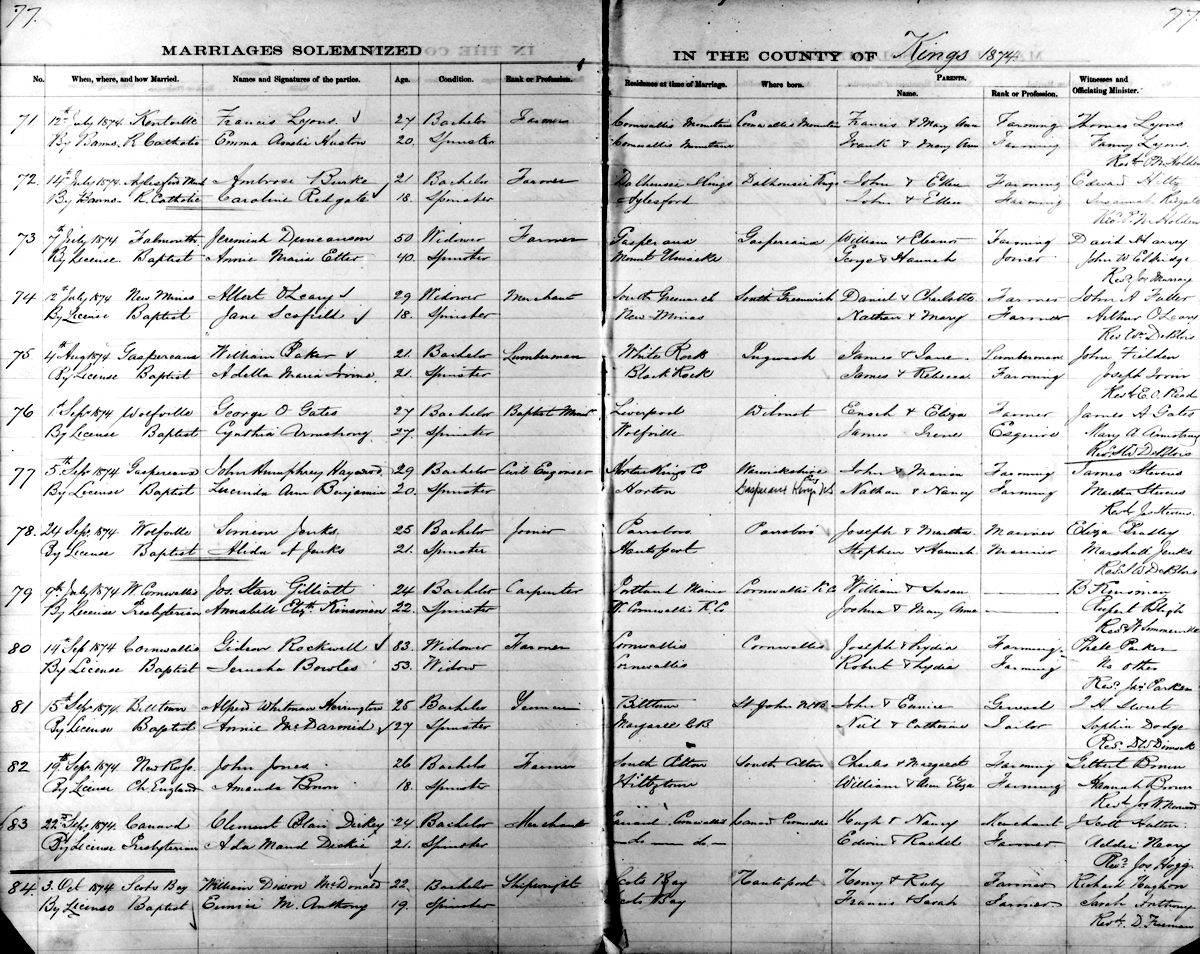 77.
77
MARRIAGES SOLEMNIZED
IN THE COUNTY OF Kings 1874
No. When, where, and how Married. Names and Signatures of the parties. Age. Condition. Rank or Profession. Residence at time of Marriage. Where born. PARENTS. Name. Rank or Profession. Witnesses and Officiating Minister.
71 12th July 1874 Kentville Francis Lyons 27 Bachelor Farmer Cornwallis Mountain Cornwallis Mountain Francis & Mary Ann Farming Thomas Lyons
By Banns. R Catholic Emma Amelia Huston 20. Spinster Cornwallis Mountain Frank & Mary Ann Farming Fanny Lyons
72. 14th July 1874 Ambrose Burke 21 Bachelor Farmer Dalhousie Kings Dalhousie Kings John & Ellen Farming Edward
By Banns. R. Catholic Caroline Redgate 18. Spinster Aylesford John & Ellen Farming Susannah Redgate
73 7th July 1874 Falmouth Jeremiah Duncanson 50 Widower Farmer Gaspereau Gaspereau William & Eleanor Farming David Harvey
By License. Baptist Annie Maria Etter 40. Spinster Mount Uniacke George & Hannah Joiner John W Eldridge
Revd Jos Murray
74 12th July 1874 New Minas Albert O'Leary 29 Widower Merchant South Greenwich South Greenwich Daniel & Charlotte Farmer John A Fuller
By License Baptist Jane Scofield 18. Spinster New Minas Nathan & Mary Farmer Arthur O'Leary
75 4th Aug 1874 Gaspereau William Baker 21. Bachelor Lumberman White Rock Pugwash James & Jane. Lumberman John Fielden
By License Baptist Adella Maria 21. Spinster Black Rock James & Rebecca Farming Joseph
Revd E.O. Read
76 1st Sept 1874 Wolfville George O Gates 27 Bachelor Baptist Minr Liverpool Wilmot Enoch & Eliza Farmer James A Gates
By License Baptist Cynthia Armstrong 27. Spinster Wolfville James Irene Esquire Mary A Armstrong
77 5th Sept 1874 Gaspereau John Humphrey Hayward 29 Bachelor Civil Engineer Horton Kings C Warwickshire John & Maria Farming James Stevens
By License Baptist Lucinda Ann Benjamin 20. Spinster Horton Gaspereau Kings NS Nathan & Nancy Farming Martha Stevens
Revd Jos Stevens
78. 24 Sept 1874 Wolfville Simeon Jenks 25 Bachelor Joiner Parrsboro Parrsboro Joseph & Martha Mariner Eliza Bradley
By License Baptist Alida A Jenks 21. Spinster Hantsport Stephen & Hannah Mariner Marshall Jenks
79 9th July 1874 W. Cornwallis Jos. Starr Gilliatt 24 Bachelor Carpenter Portland Maine Cornwallis K.C William & Susan B Kinsman
By License Presbyterian Annabell Elizth Kinsman 22 Spinster W. Cornwallis K.C Joshua & Mary Anne Rupert Bligh
80 14th Sept 1874 Cornwallis Gideon Rockwell 83. Widower Farmer Cornwallis Cornwallis Joseph & Lydia Farming. Parker
By License Baptist Jerusha Bowles 53. Widow Cornwallis Robert & Lydia Farming No other
81 5th Sept 1874. Billtown Alfred Whitman Harrington 25 Bachelor Billtown St John N.B. John & Eunice General J H Sweet
By License, Baptist Annie McDarmid 27 Spinster Margaree C.B Neil & Catherine Tailor Sophia Dodge
Revd D W Dimock
82 19th Sept 1874. New Ross. John Jones 26 Bachelor Farmer South Alton South Alton Charles & Margaret Farming Gilbert Brown
By License Ch England Amanda 18. Spinster William & Ann Eliza Farming Hannah Brown
83 22nd Sept 1874. Canard Clement Blair Dickey 24. Bachelor Merchant Canard Cornwallis Canard Cornwallis Hugh & Nancy Merchant J Scott
By License Presbyterian Ada Maud Dickie 21. Spinster Do Do Edwin & Rachel Farmer Addie
Revd Jos Hogg
84. 3. Oct 1874 Scots Bay William Dixon McDonald 22. Bachelor Shipwright Scots Bay Hantsport Henry & Ruby Farmer Richard
By License Baptist Eunice M. Anthony 19. Spinster Scots Bay Francis & Sarah Farmer Sarah Anthony
Revd. D. Freeman